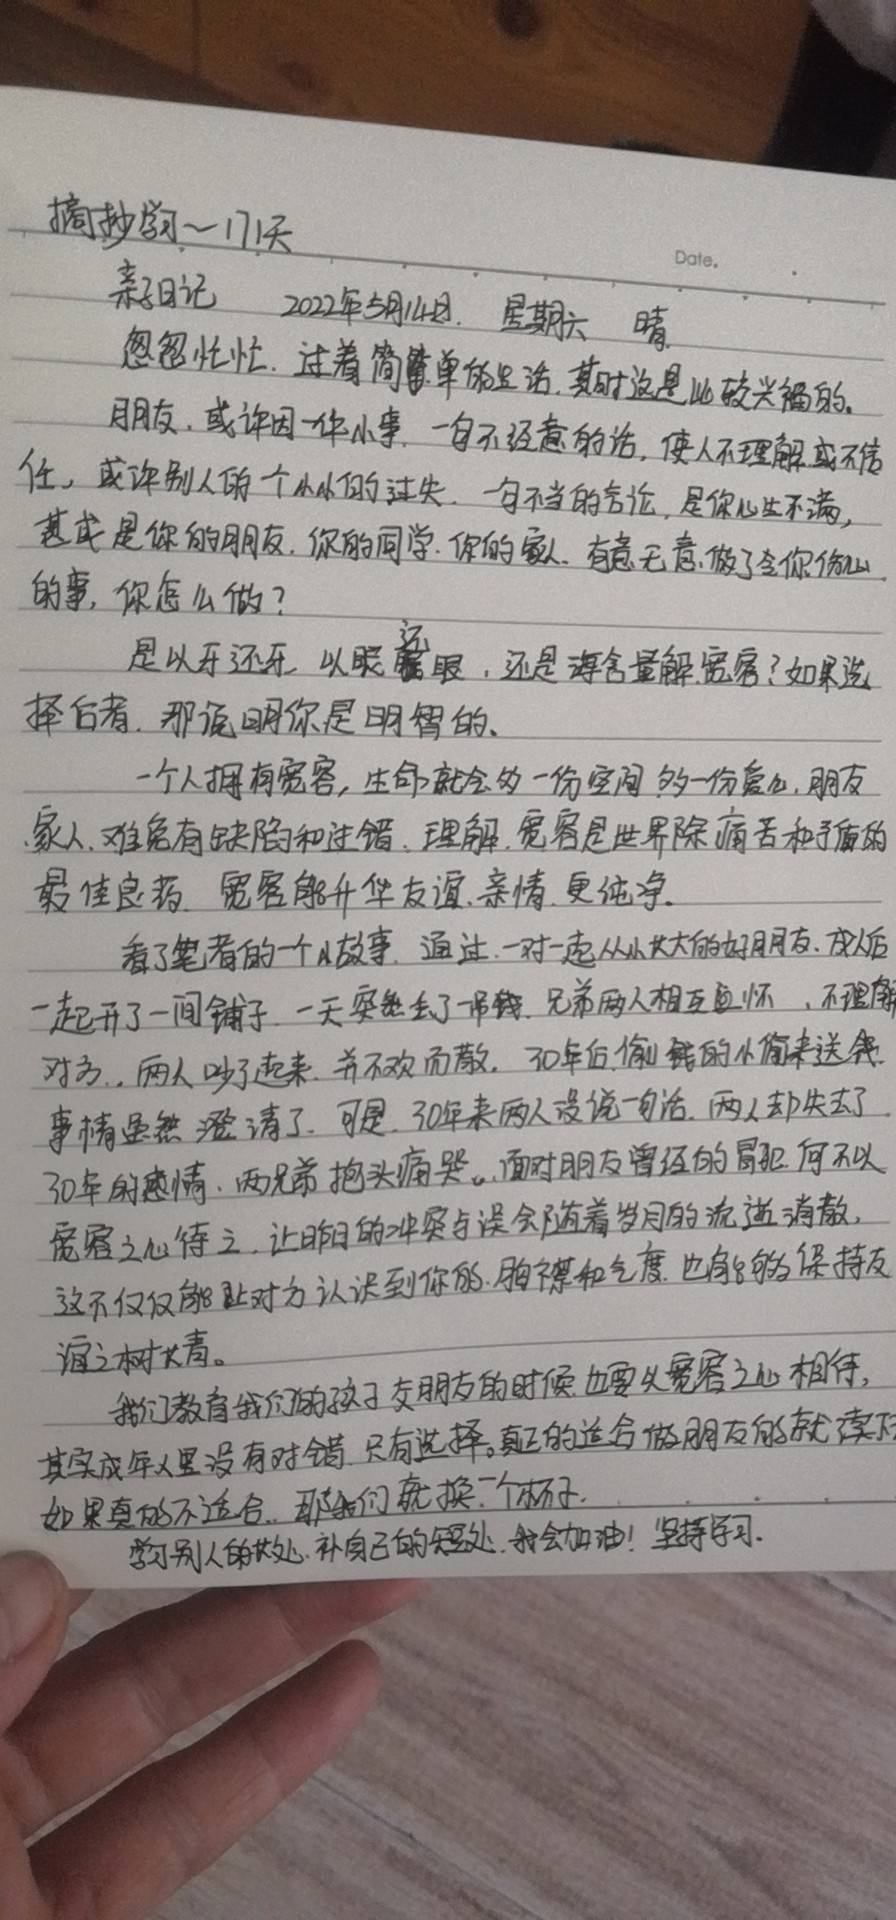 摘抄学习～171天
Date.
亲子日记 2022年5月14日. 星期六 晴
忽忽忙忙. 过着简单的生活. 其时这是比较兴福的.
朋友. 或许因一件小事. 一句不经意的话, 使人不理解或不信
任, 或许别人的一个小小的过失. 一句不当的言论, 是你心生不满,
甚或是你的朋友. 你的同学. 你的家人. 有意无意. 做了令你伤心
的事, 你怎么做?
是以牙还牙, 以眼还眼, 还是海含量解. 宽容? 如果选
择后者. 那说明你是明智的.
一个人拥有宽容, 生命就会多一份空间 多一份爱心. 朋友
家人. 难免有缺陷和过错. 理解. 宽容是世界除痛苦和矛盾的
最佳良药. 宽容能升华友谊. 亲情. 更纯净.
看了笔者的一个小故事. 通过. 一对一起从小长大的好朋友. 成人后
一起开了一间铺子. 一天突然丢了一吊钱. 兄弟两人相互 怀, 不理解
对方., 两人吵了起来. 并不欢而散. 30年后, 偷钱的小偷来送钱
事情虽然 澄请了. 可是. 30年来两人没说一句话. 两人却失去了
30年的感情. 两兄弟抱头痛哭。面对朋友曾经的冒犯. 何不以
宽容之心待之. 让昨日的冲突与误会随着岁月的流逝消散.
这不仅仅能让对方认识到你的. 胸襟和气度. 也能够保持友
谊之树长青。
我们教育我们的孩子交朋友的时候. 也要以宽容之心相待,
其实成年人里没有对错. 只有选择。真正的适合做朋友的就
如果真的不适合.. 那我们就换一个杯子.
学习别人的长处. 补自己的短处. 我会加油! 坚持学习.